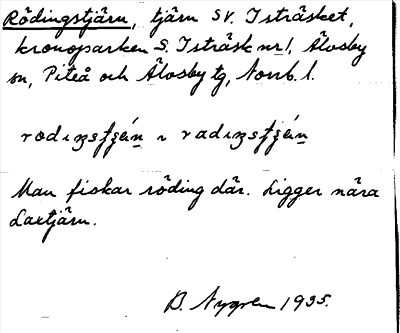 Rödingstjärn, tjärn SV. Isträsket,
kronoparken S. Isträsk nr 1, Älvsby
sn, Piteå och Älvsby tg, Norrb. l.
Man fiskar röding där. Ligger nära
Laxtjärn.
B. Nygren 1935.